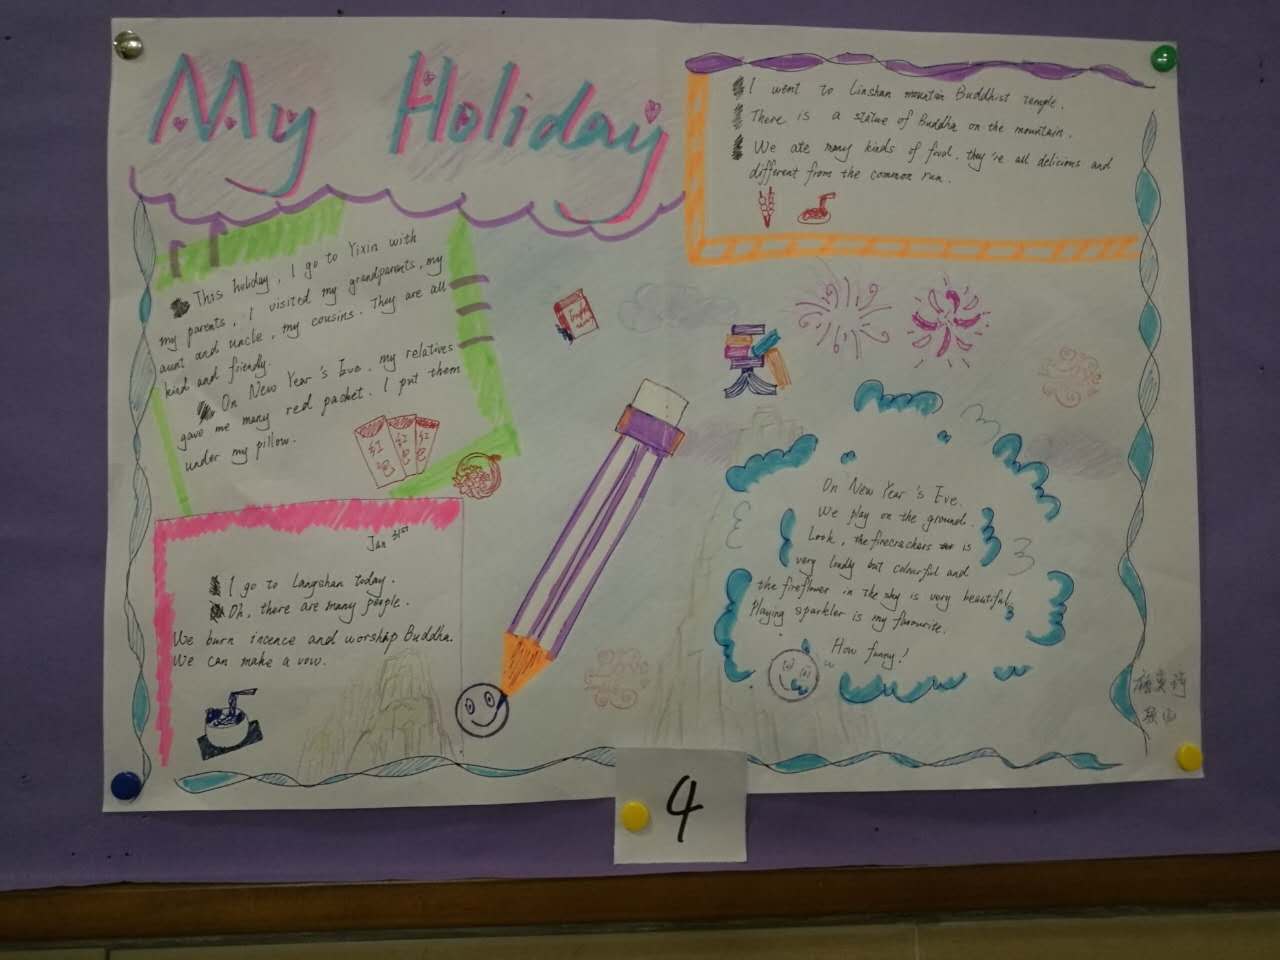 My Holiday
I went to Linshan mountain Buddhist temple.
There is a statue of Buddha on the mountain.
We ate many kinds of food, they're all delicious and
different from the common run.
This holiday, I go to Yixin with
my parents, I visited my grandparents, my
aunt and uncle, my cousins. They are all
kind and friendly.
On New Year's Eve, my relatives
gave me many red packet. I put them
under my pillow.
红包
红包
红包
Jan 31st
I go to Langshan today.
Oh, there are many people.
We burn incence and worship Buddha.
We can make a vow.
On New Year's Eve.
We play on the ground.
Look, the firecrachers is
very loudly but colourful and
the fireflower in the sky is very beautiful.
Playing sparkler is my favourite.
How funny!
4